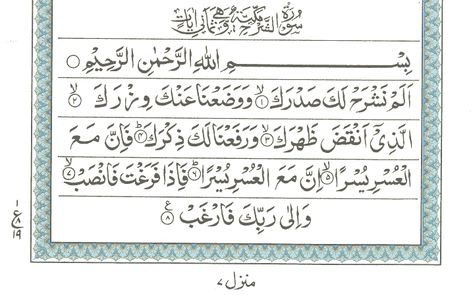 سُوْرَةُ اَلَمْ نَشْرَحْ مَكِّيَّةٌ وَّهِيَ ثَمَانِيْ اٰيَاتٍ
بِسْمِ اللهِ الرَّحْمٰنِ الرَّحِيْمِ
اَلَمْ نَشْرَحْ لَكَ صَدْرَكَ ۙ۱ وَوَضَعْنَا عَنْكَ وِزْرَكَ ۙ۲
الَّذِيْٓ اَنْقَضَ ظَهْرَكَ ۙ۳ وَرَفَعْنَا لَكَ ذِكْرَكَ ۴ فَاِنَّ مَعَ
الْعُسْرِ يُسْرًا ۙ۵ اِنَّ مَعَ الْعُسْرِ يُسْرًا ۶ فَاِذَا فَرَغْتَ فَانْصَبْ ۙ۷
وَاِلٰى رَبِّكَ فَارْغَبْ ۸ ع
۱ ع ۸ ۱۹
منزل ۷